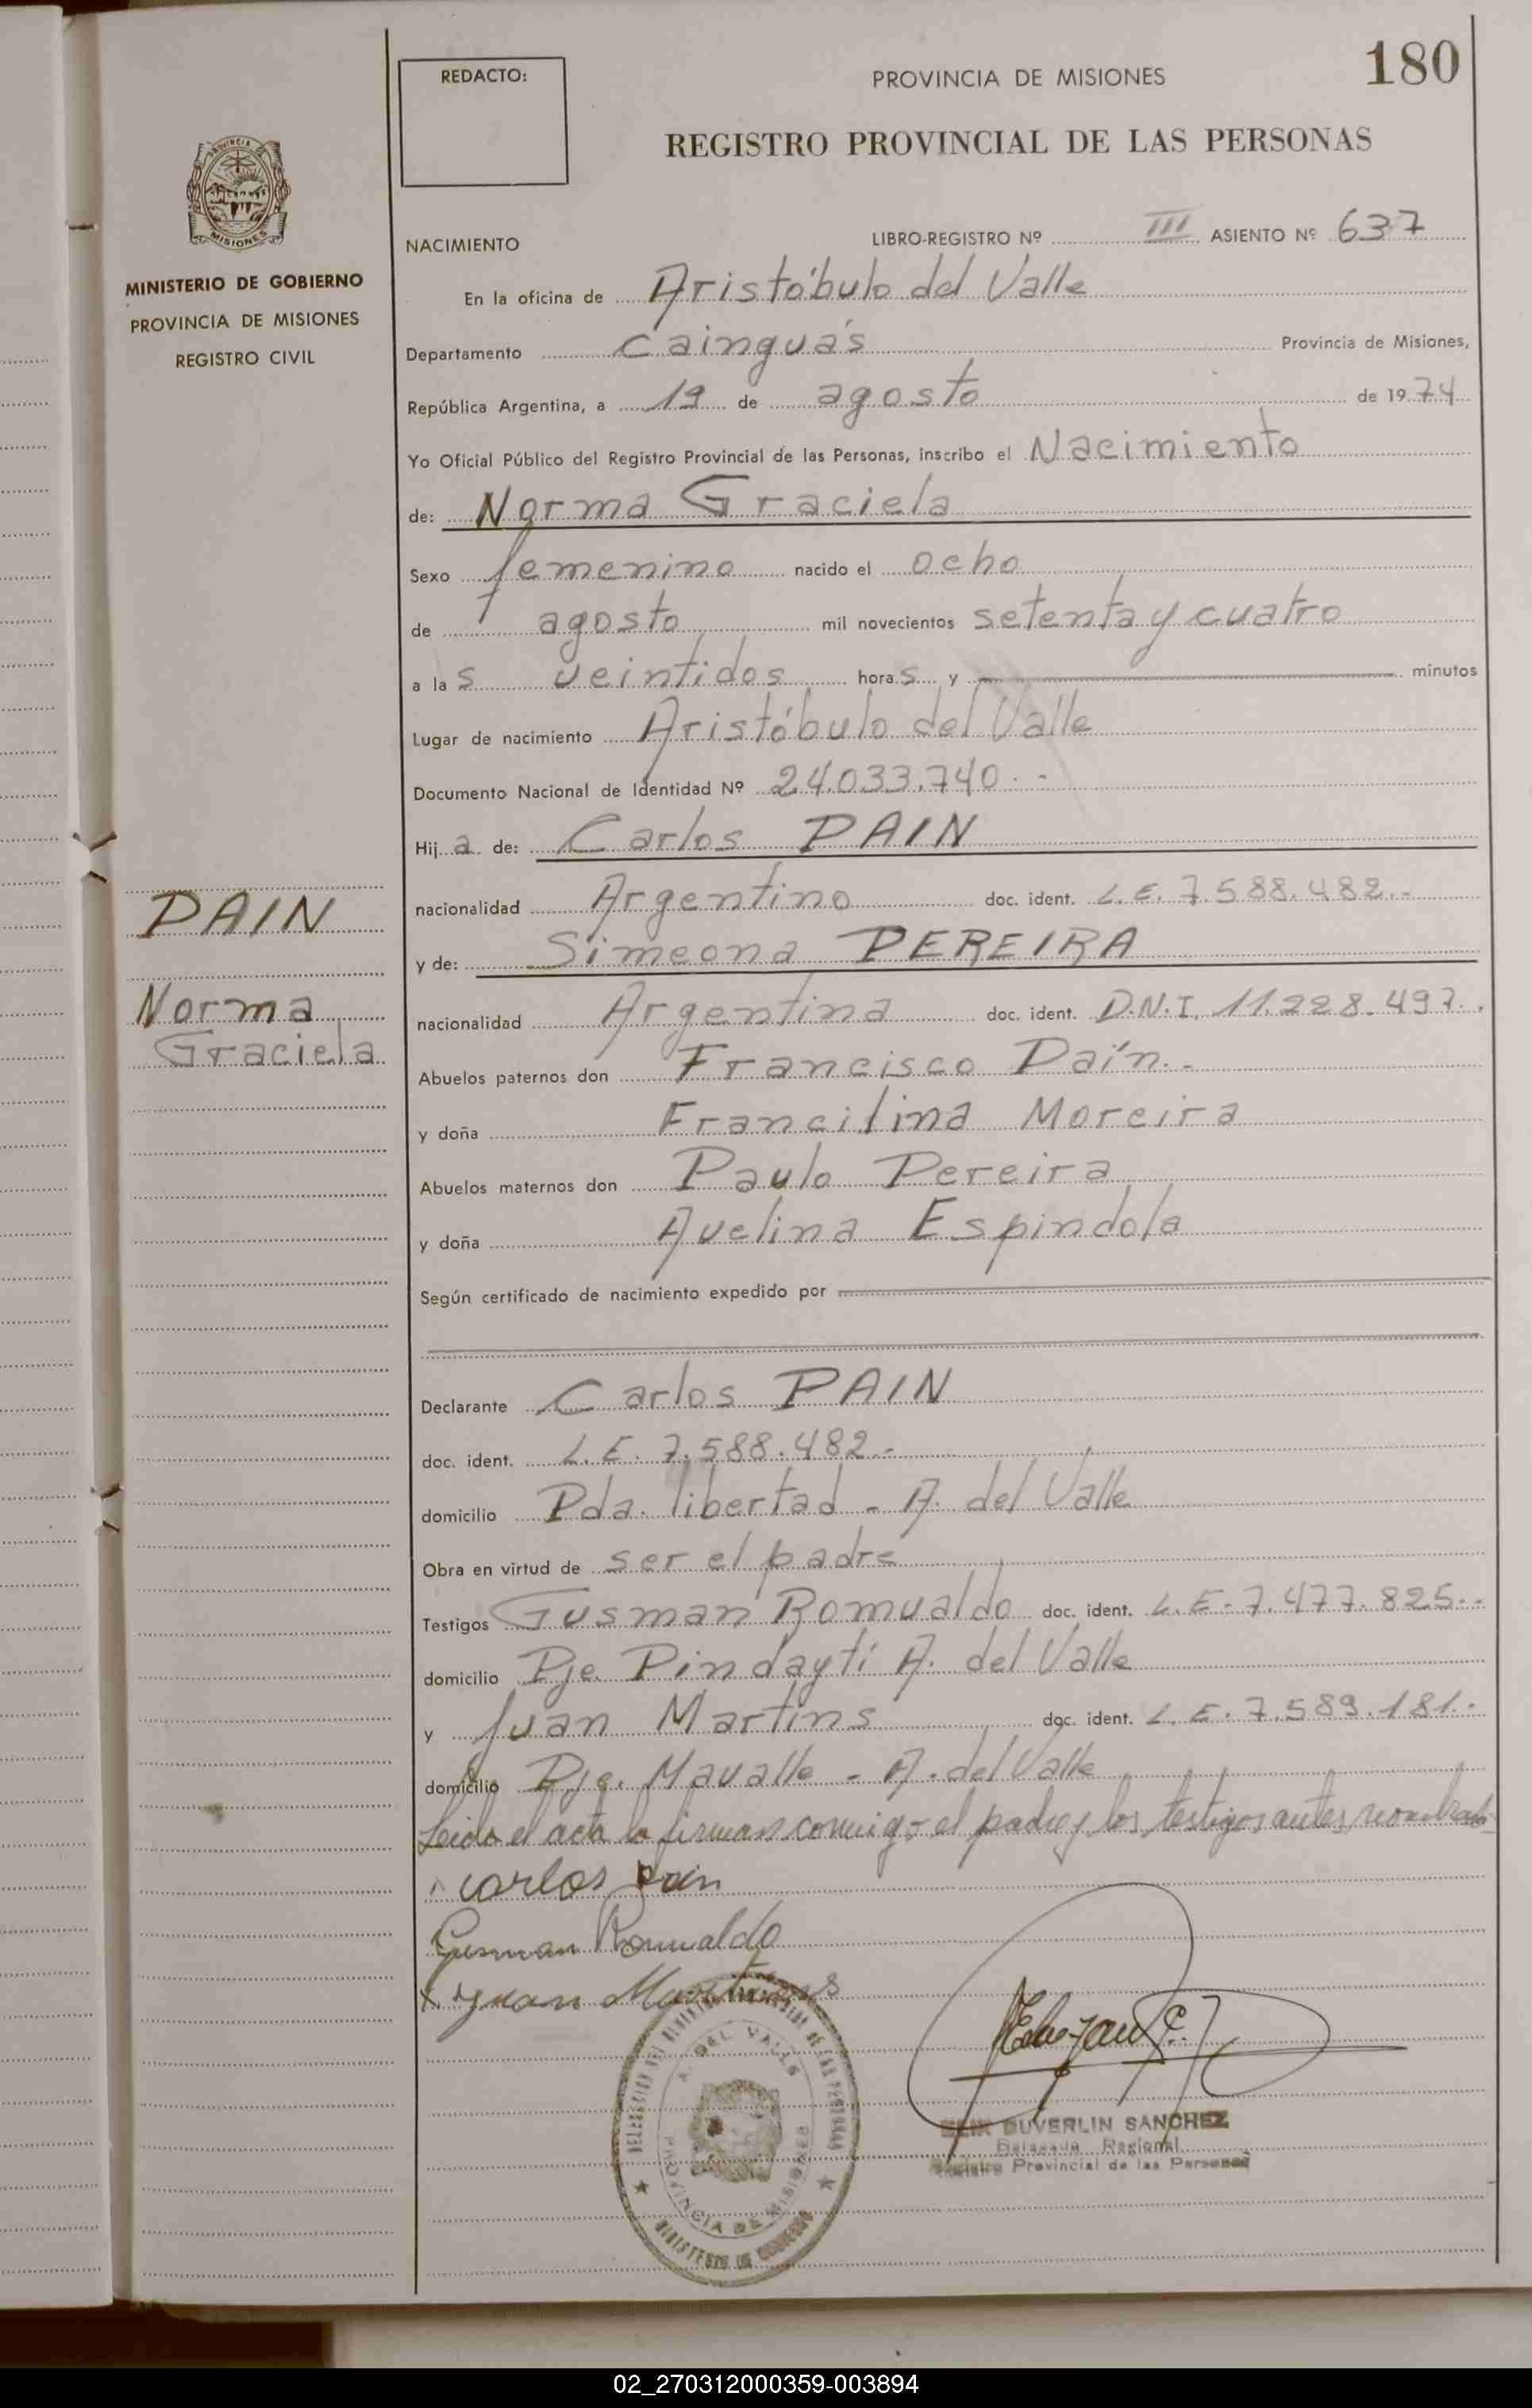 180
REDACTO:
PROVINCIA DE MISIONES
REGISTRO PROVINCIAL DE LAS PERSONAS
PROVINCIA DE
MISIONES
MINISTERIO DE GOBIERNO
PROVINCIA DE MISIONES
REGISTRO CIVIL
NACIMIENTO LIBRO-REGISTRO Nº III ASIENTO Nº 637
En la oficina de Aristóbulo del Valle
Departamento Cainguás Provincia de Misiones,
República Argentina, a 19 de agosto de 1974
Yo Oficial Público del Registro Provincial de las Personas, inscribo el Nacimiento
de: Norma Graciela
Sexo femenino nacido el ocho
de agosto mil novecientos setenta y cuatro
a las veintidos horas y minutos
Lugar de nacimiento Aristóbulo del Valle
Documento Nacional de Identidad Nº 24.033.740.-
Hija de: Carlos PAIN
nacionalidad Argentino doc. ident. L.E. 7.588.482.-
y de: Simeona PEREIRA
nacionalidad Argentina doc. ident. D.N.I. 11.228.497.
PAIN
Norma
Graciela
Abuelos paternos don Francisco Paín.-
y doña Francilina Moreira
Abuelos maternos don Paulo Pereira
y doña Avelina Espindola
Según certificado de nacimiento expedido por
Declarante Carlos PAIN
doc. ident. L.E. 7.588.482.-
domicilio Pda. libertad - A. del Valle
Obra en virtud de ser el padre
Testigos Gusman Romualdo doc. ident. L.E. 7.477.825.-
domicilio Pje. Pindaytí A. del Valle
y Juan Martins doc. ident. L.E. 7.589.181.-
domicilio Pje. Mavalle - A. del Valle
Leida el acta la firman conmigo el padre y los testigos antes nombrados
Carlos Pain
Gusman Romualdo
x Juan Martins
A. DEL VALLE
PROVINCIA DE MISIONES
MINISTERIO DE GOBIERNO
DUVERLIN SANCHEZ
Regional
Provincial de las Personas
02_270312000359-003894